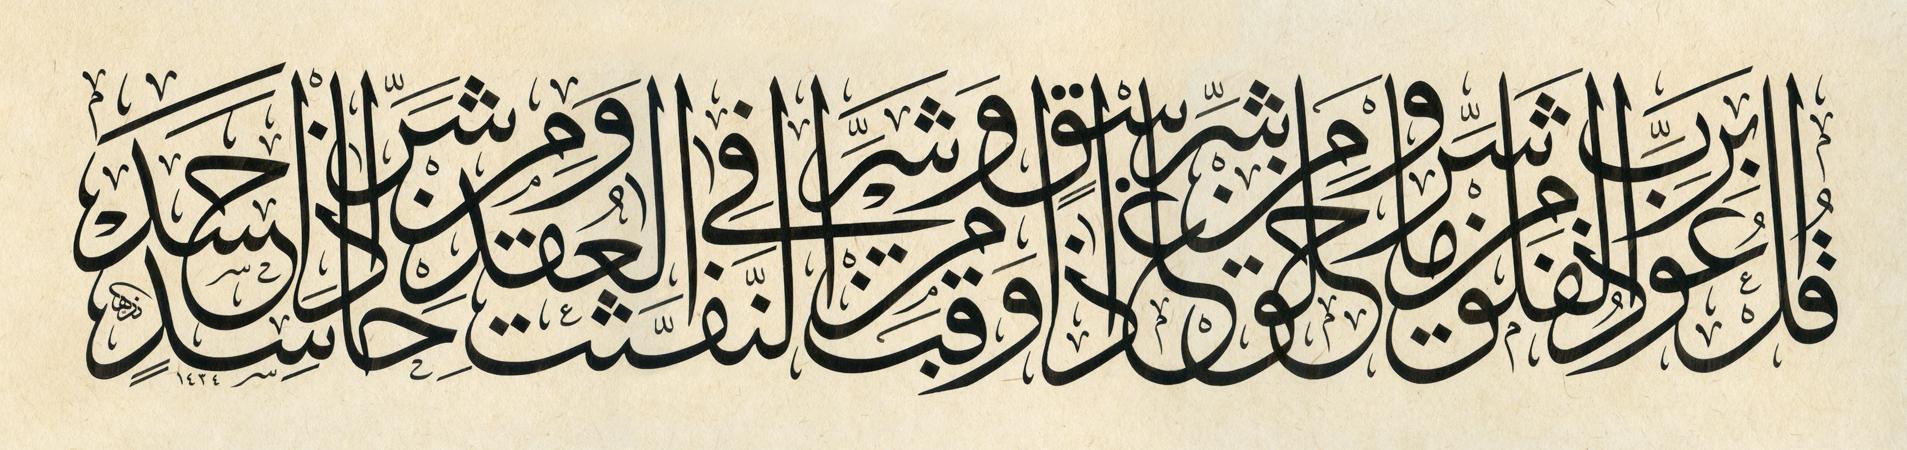 قُلْ أَعُوذُ بِرَبِّ الْفَلَقِ مِن شَرِّ مَا خَلَقَ وَمِن شَرِّ غَاسِقٍ إِذَا وَقَبَ وَمِن شَرِّ النَّفَّٰثَٰتِ فِي الْعُقَدِ وَمِن شَرِّ حَاسِدٍ إِذَا حَسَدَ
١٤٣٤